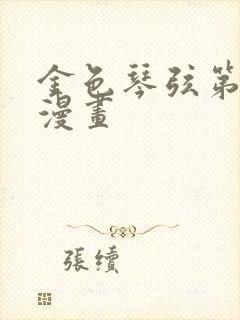 金色琴弦第
漫畫
張續